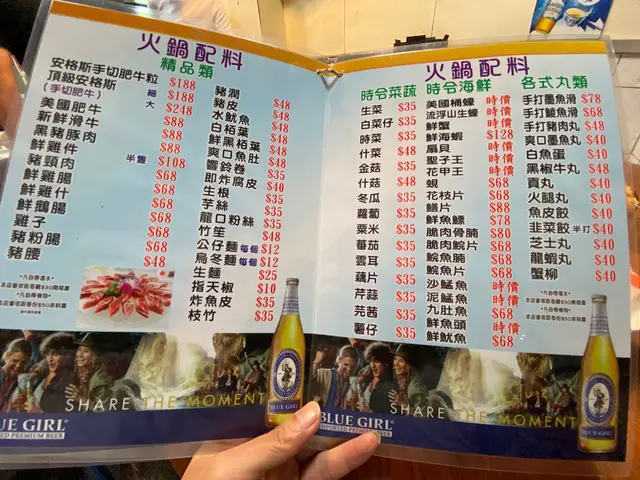 火鍋配料
精品類
安格斯手切肥牛粒 $188
頂級安格斯 細 $188
(手切肥牛) 大 $248
美國肥牛 $88
新鮮滑牛 $88
黑豬豚肉 $88
鮮雞件 半隻 $108
豬頸肉 $68
鮮雞腸 $68
鮮雞什 $68
鮮鵝腸 $68
雞子 $68
豬粉腸 $68
豬腰 $48
豬潤 $48
豬皮 $48
水魷魚 $48
白栢葉 $48
鮮黑栢葉 $48
爽口魚肚 $48
響鈴卷 $35
即炸腐皮 $40
生根 $35
芋絲 $35
龍口粉絲 $35
竹笙 $48
公仔麵 每個 $12
烏冬麵 每個 $12
生麵 $25
指天椒 $10
炸魚皮 $35
枝竹 $35
SHARE THE MOMENT
BLUE GIRL
IMPORTED PREMIUM BEER
火鍋配料
時令菜蔬
生菜 $35
白菜仔 $35
時菜 $35
什菜 $48
金菇 $35
什菇 $48
冬瓜 $35
蘿蔔 $35
粟米 $35
番茄 $35
雲耳 $35
藕片 $35
芹蒜 $35
芫茜 $35
薯仔 $35
時令海鮮
美國桶蠔 時價
流浮山生蠔 時價
鮮蟹 時價
鮮海蝦 $128
扇貝 時價
聖子王 時價
花甲王 時價
蜆 $68
花枝片 $68
鱔片 $88
鮮魚鰾 $78
脆肉骨腩 $80
脆肉鯇片 $68
鯇魚腩 $68
鯇魚片 $68
沙鯭魚 時價
泥鯭魚 時價
九肚魚 $68
鮮魚頭 時價
鮮魷魚 $68
各式丸類
手打墨魚滑 $78
手打鯪魚滑 $68
手打豬肉丸 $48
爽口墨魚丸 $40
白魚蛋 $40
黑椒牛丸 $48
貢丸 $40
火腿丸 $40
魚皮餃 $40
韮菜餃 半打 $40
芝士丸 $40
龍蝦丸 $40
蟹柳 $40
SHARE THE MOMENT
BLUE GIRL
IMPORTED PREMIUM BEER